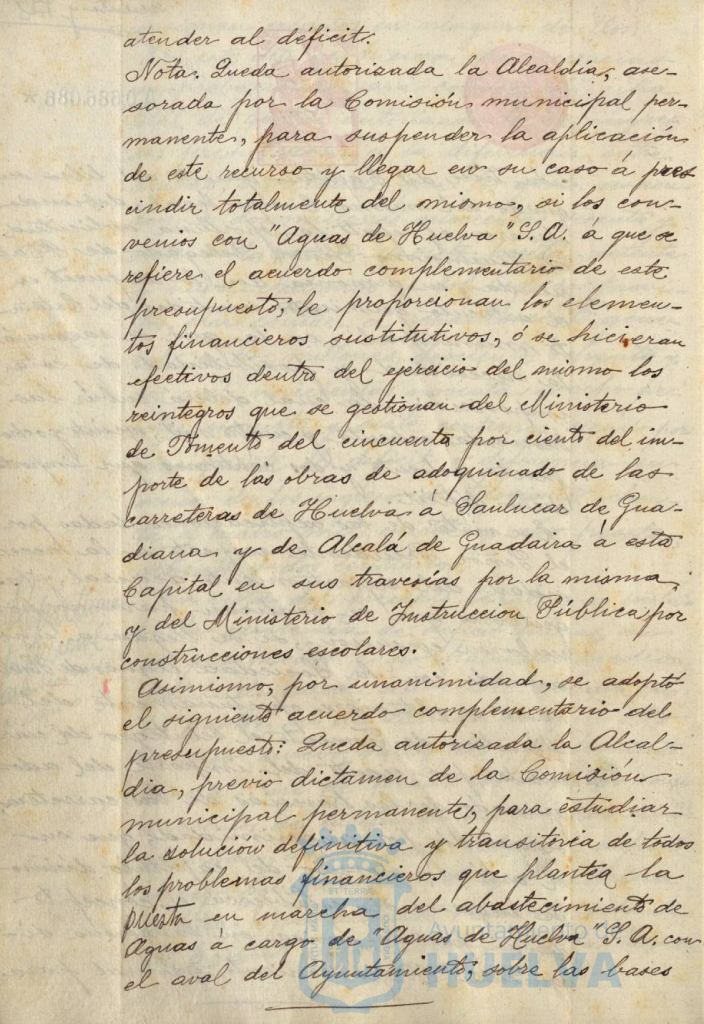 atender al déficit.
Nota. Queda autorizada la Alcaldía, ase-
sorada por la Comisión municipal per-
manente, para suspender la aplicación
de este recurso y llegar en su caso á pres
cindir totalmente del mismo, si los con-
venios con "Aguas de Huelva" S. A. á que se
refiere el acuerdo complementario de este
presupuesto, le proporcionan los elemen-
tos financieros sustitutivos, ó se hicieran
efectivos dentro del ejercicio del mismo los
reintegros que se gestionan del Ministerio
de Fomento del cincuenta por ciento del im-
porte de las obras de adoquinado de las
carreteras de Huelva á Sanlucar de Gua-
diana y de Alcalá de Guadaira á esta
Capital en sus travesías por la misma,
y del Ministerio de Instruccion Pública por
construcciones escolares.
Asimismo, por unanimidad, se adoptó
el siguiente acuerdo complementario del
presupuesto: Queda autorizada la Alcal-
dia, previo dictamen de la Comisión
municipal permanente, para estudiar
la solución definitiva y transitoria de todos
los problemas financieros que plantea la
puesta en marcha del abastecimiento de
Aguas á cargo de "Aguas de Huelva" S. A. con
el aval del Ayuntamiento, sobre las bases
Ayuntamiento de
HUELVA